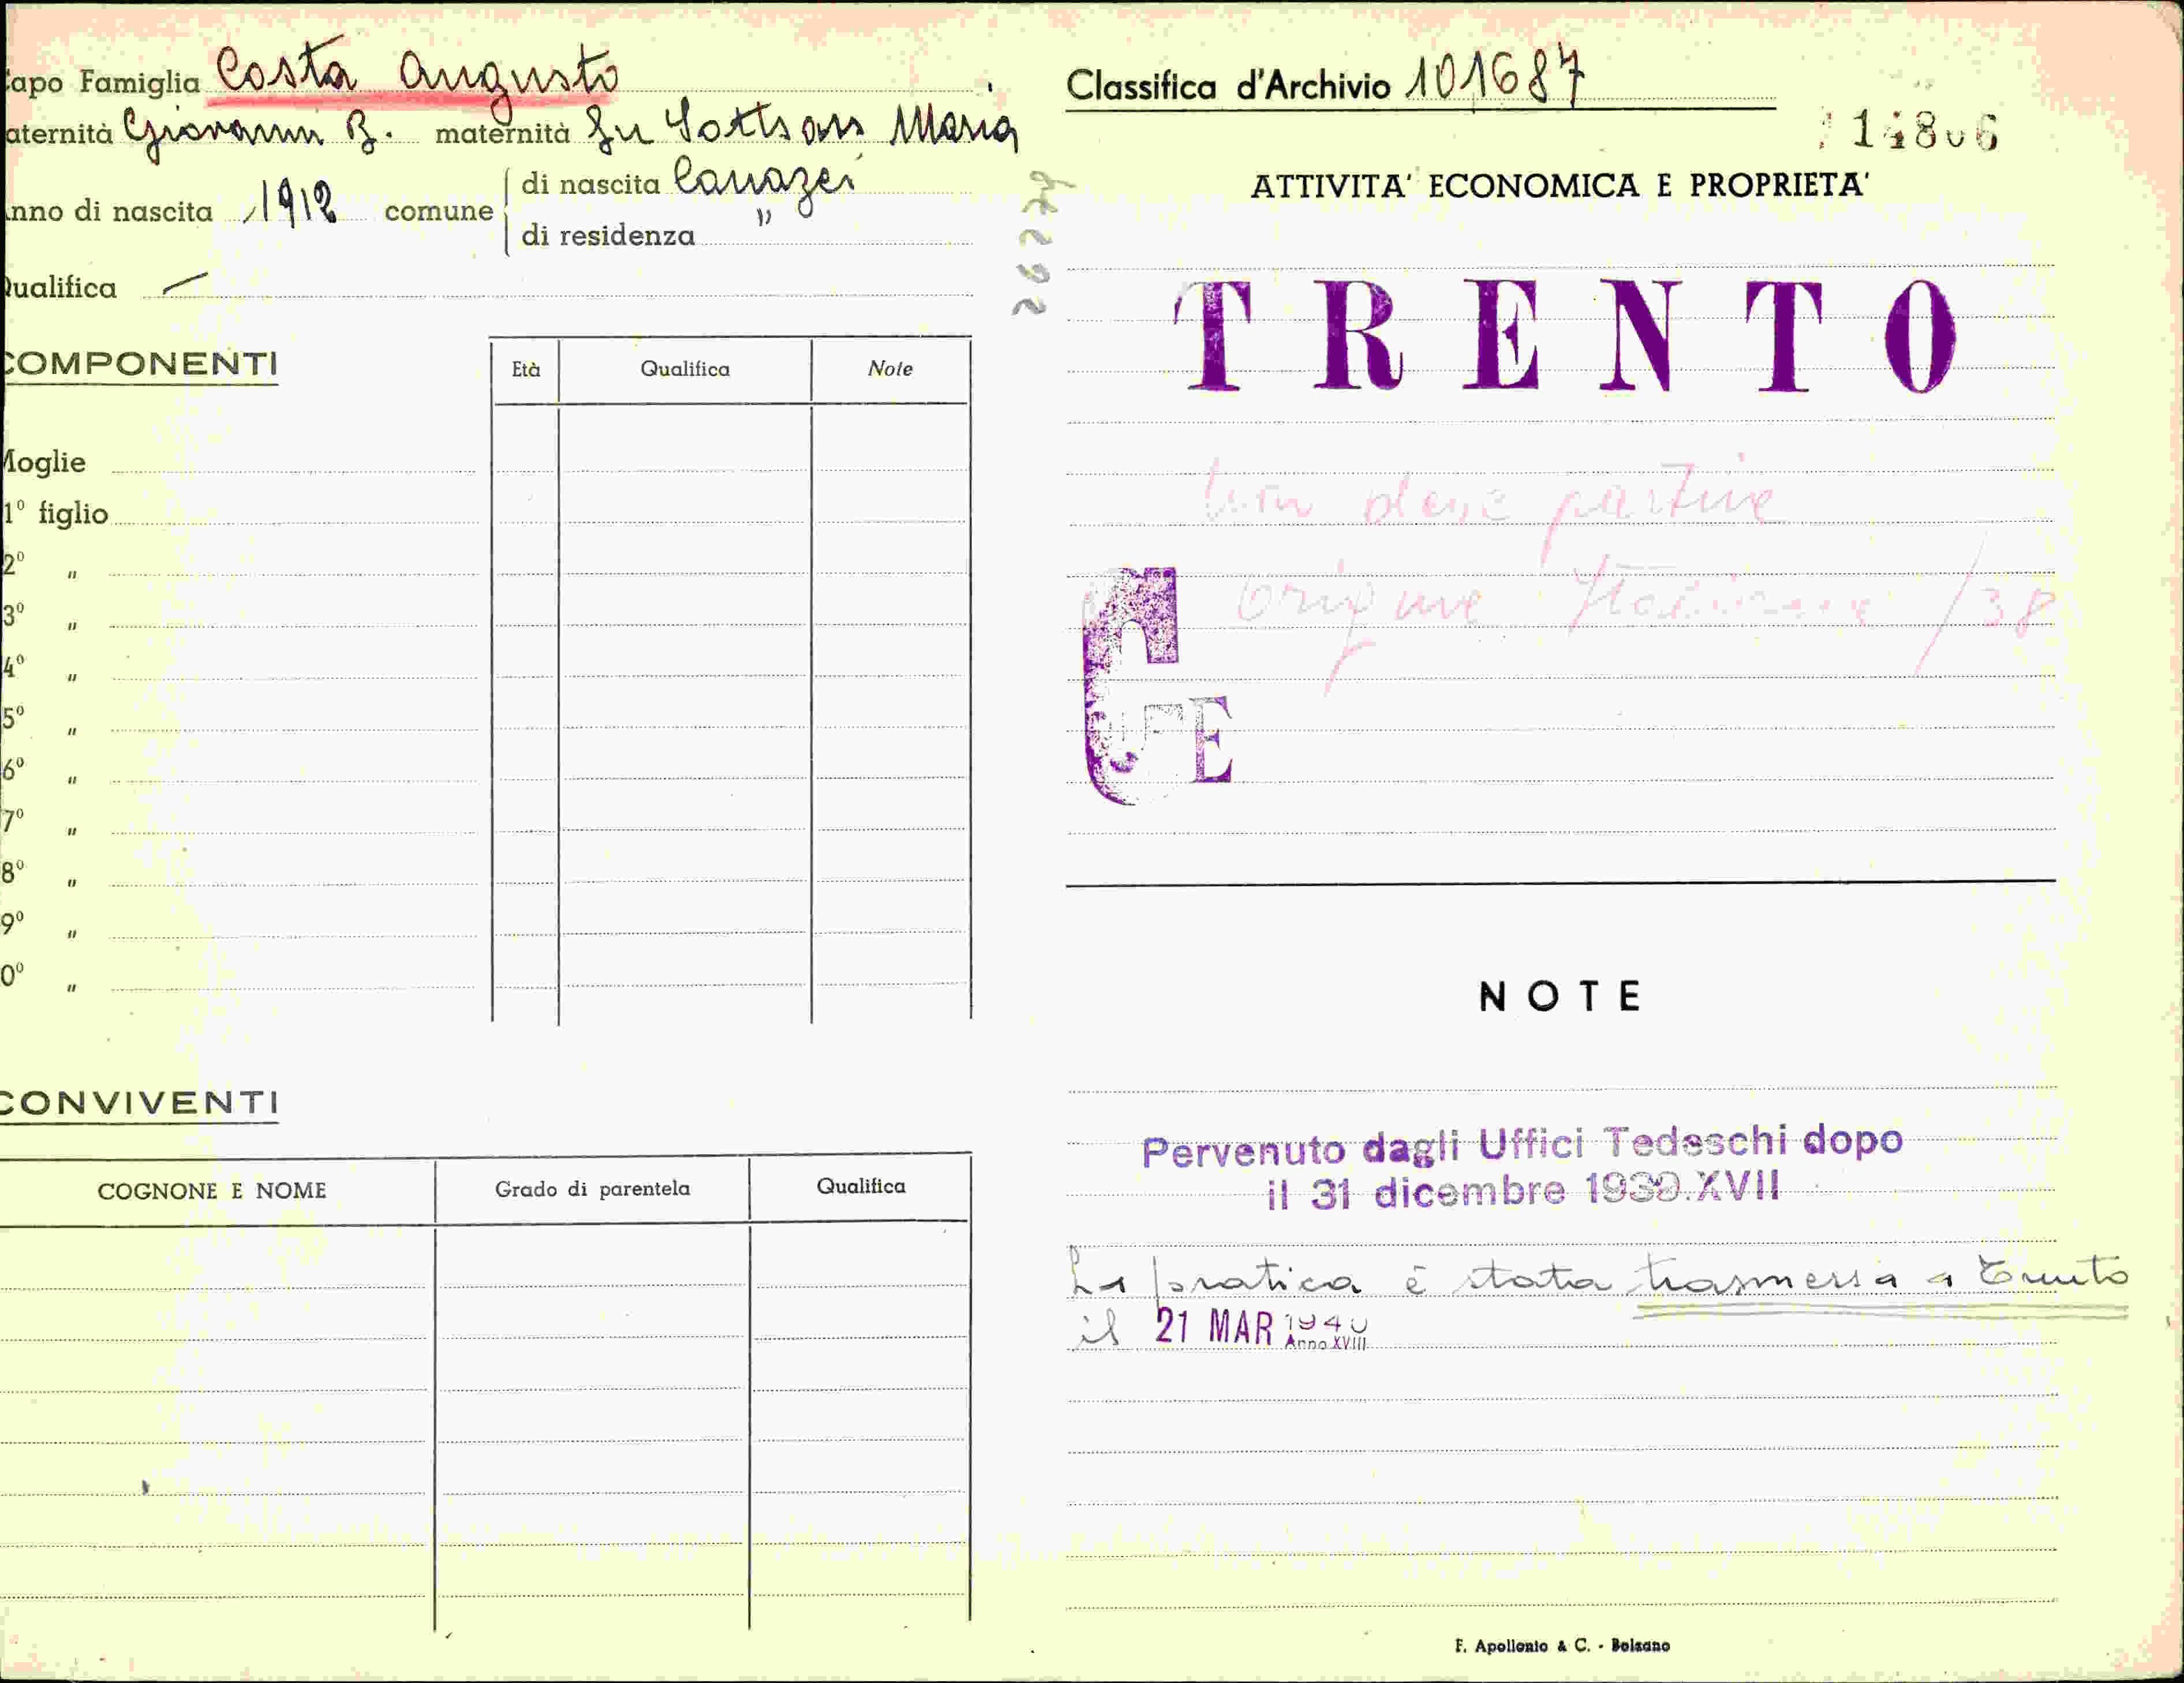 apo Famiglia Costa Augusto
aternità Giovanni B. maternità fu Sottsass Maria
nno di nascita 1912 comune di nascita Canazei
di residenza "
ualifica —
COMPONENTI
Età Qualifica Note
Moglie
1º figlio
2º "
3º "
4º "
5º "
6º "
7º "
8º "
9º "
0º "
CONVIVENTI
COGNONE E NOME Grado di parentela Qualifica
Classifica d'Archivio 101687
14806
ATTIVITA' ECONOMICA E PROPRIETA'
TRENTO
deve partire
origine Italiana /38
E
NOTE
Pervenuto dagli Uffici Tedeschi dopo
il 31 dicembre 1939.XVII
La pratica è stata trasmessa a Trento
il 21 MAR 1940
Anno XVIII
F. Apollonio & C. - Bolzano